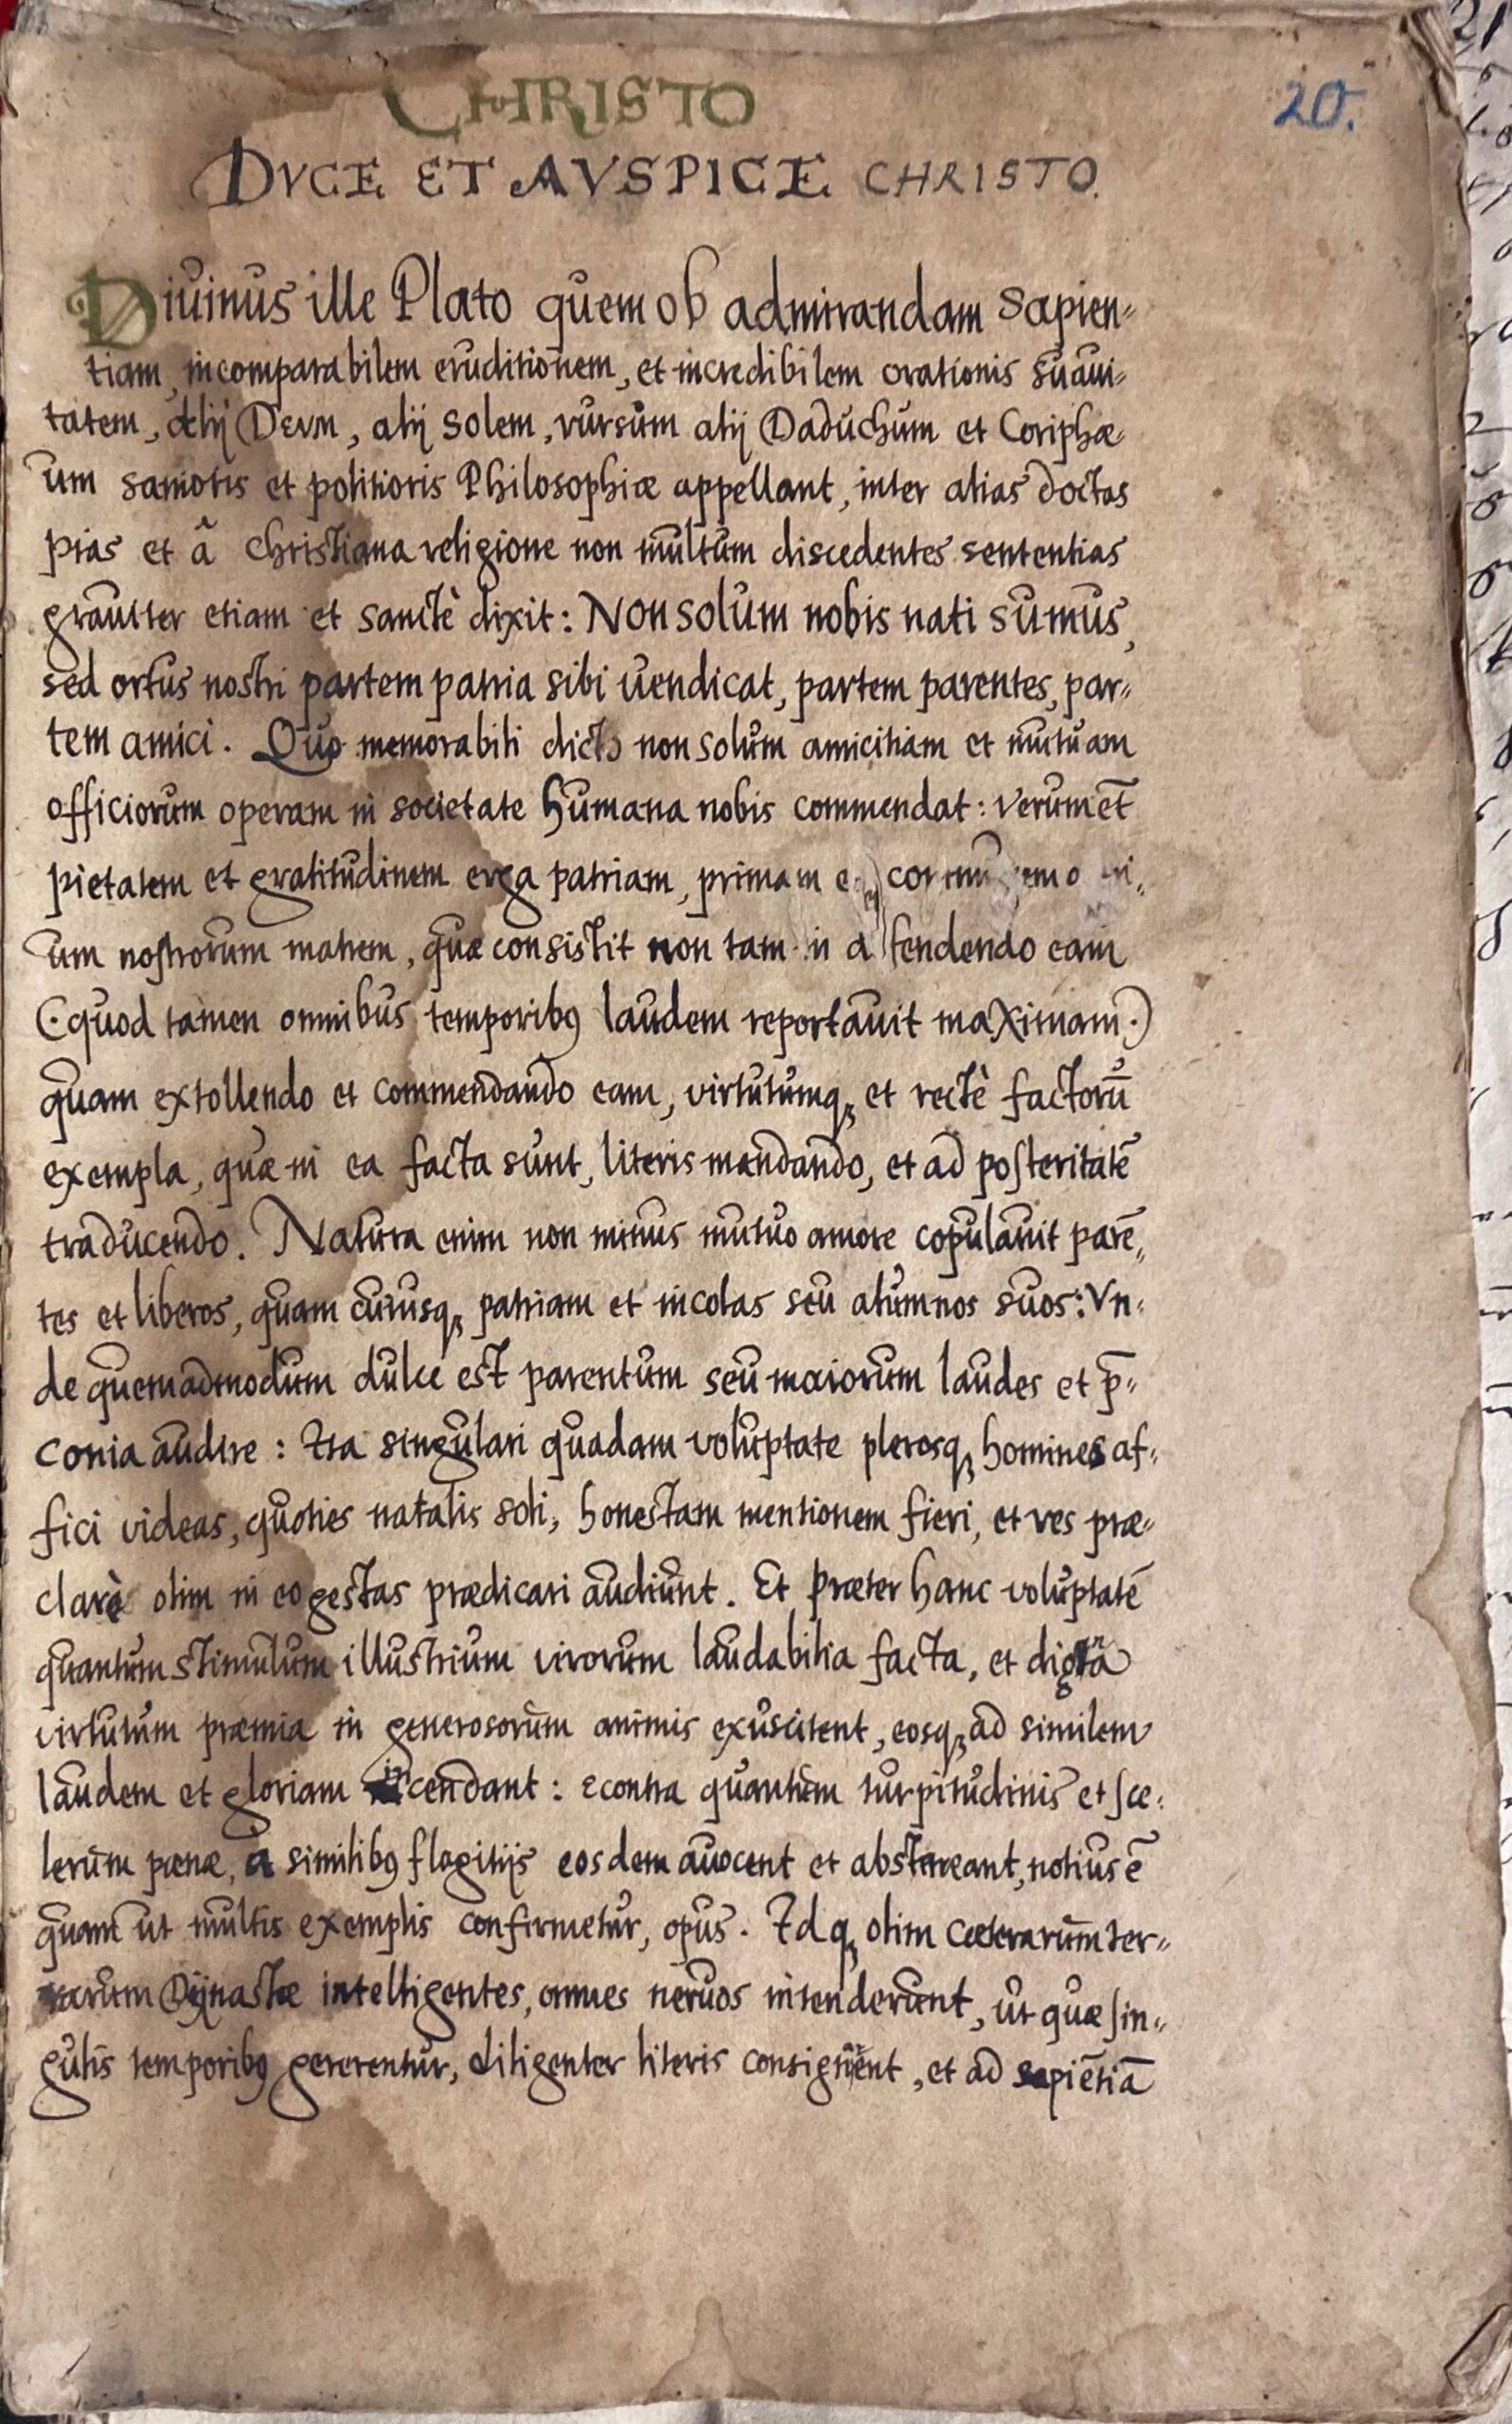 CHRISTO
20.
DVCE ET AVSPICE CHRISTO.
Diuinus ille Plato quem ob admirandam sapien=
tiam, incomparabilem eruditionem, et incredibilem orationis suaui=
tatem, alij Deum, alij Solem, rursum alij Daduchum et Coriphæ=
um sanioris et politioris Philosophiæ appellant, inter alias doctas
pias et â Christiana religione non multum discedentes sententias
grauiter etiam et sanctè dixit: Non solum nobis nati sumus,
sed ortus nostri partem patria sibi uendicat, partem parentes, par=
tem amici. Quo memorabili dicto non solum amicitiam et mutuam
officiorum operam in societate humana nobis commendat: verumet̄
pietatem et gratitudinem erga patriam, primam
um nostrorum matrem, quæ consistit non tam in fendendo eam
(quod tamen omnibus temporibꝰ laudem reportauit maximam.)
quam extollendo et commendando eam, virtutumqꝫ et rectè factorū
exempla, quæ in ea facta sunt, literis mandando, et ad posteritatē
traducendo. Natura enim non minus mutuo amore copulauit parē=
tes et liberos, quam cuiusqꝫ patriam et incolas seu alumnos suos: Vn=
de quemadmodum dulce est parentum seu maiorum laudes et p̄=
conia audire: Ita singulari quadam voluptate plerosqꝫ homines af=
fici videas, quoties natalis soli, honestam mentionem fieri, et res præ=
clarè olim in eo gestas prædicari audiunt. Et præter hanc voluptatē
quantum stimulum illustrium virorum laudabilia facta, et digna
virtutum præmia in generosorum animis exuscitent, eosqꝫ ad similem
laudem et gloriam incendant: econtra quantum turpitudinis et sce=
lerum pœnæ, a similibꝰ flagitijs eosdem auocent et absterreant, notius ē
quam ut multis exemplis confirmetur, opus. Idqꝫ olim cæterarum ter=
rarum Dÿnastæ intelligentes, omnes neruos intenderunt, ut quæ sin=
gulis temporibꝰ gererentur, diligenter literis consignēnt, et ad sapiētiā